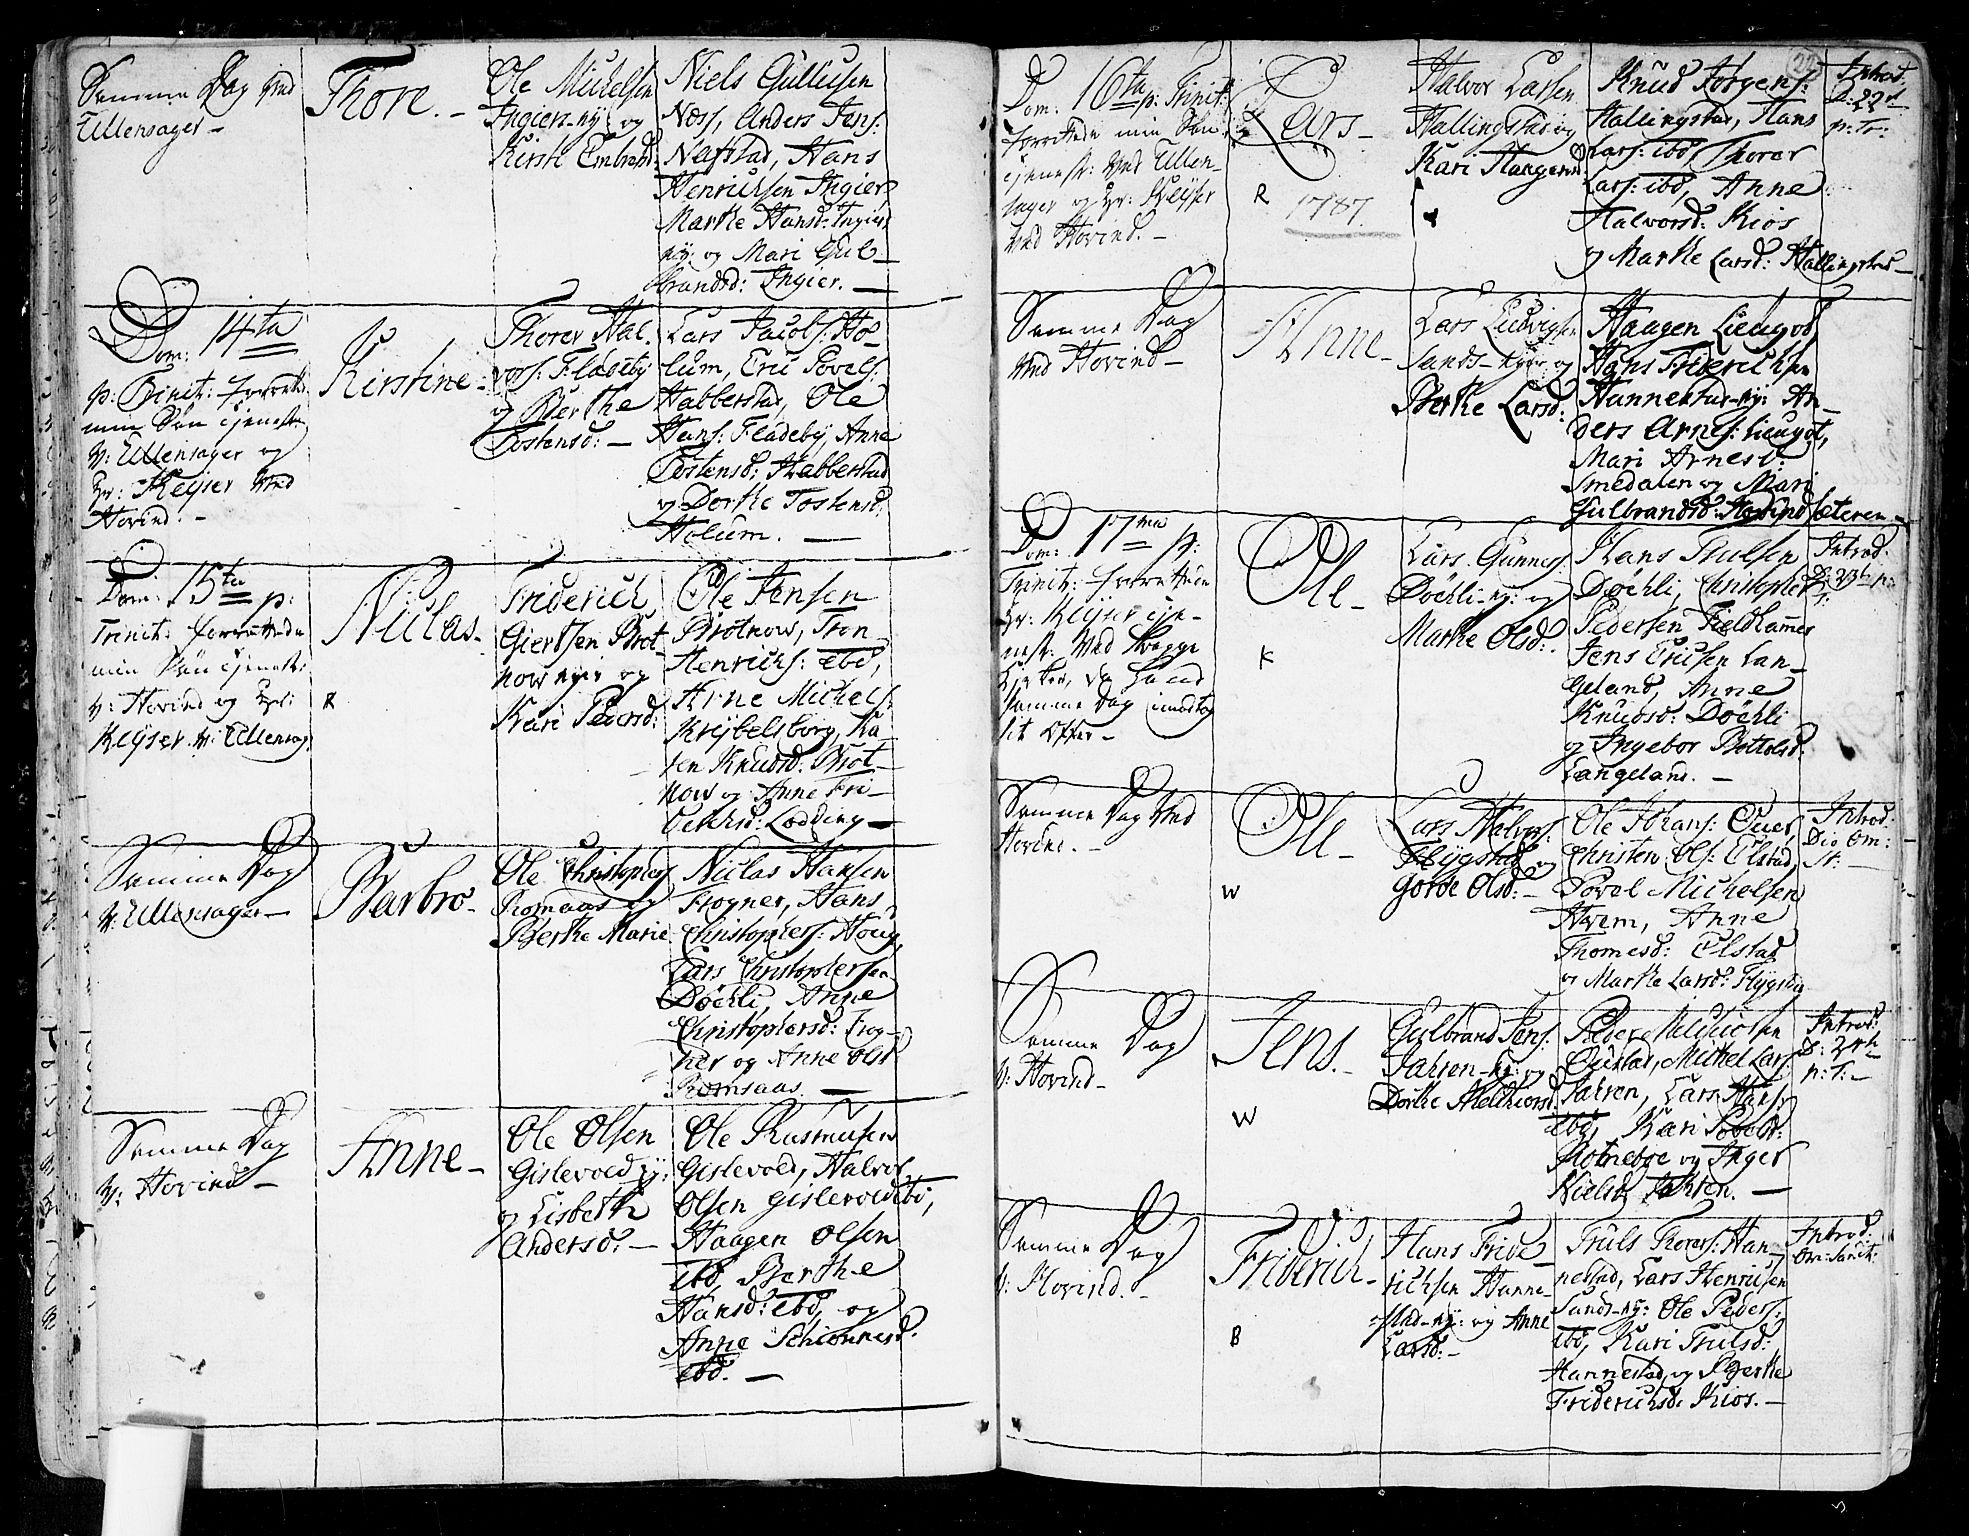 Samme Dag ved
Ullensager –
Thore. –
Ole Michelsen
Ingier-ny: og
Kirsti Embrets
Niels Gulliksen
Næss, Anders Jens:
Nafstad, Hans
Henrichsen Ingier,
Marthe Hansd: Ingier
ny: og Mari Gul-
brandsd: Ingier. –
Dom: 14ta
p: Trinit: forrett:
min Søn tienesten
v: Ullensager og
Hr: Keyser ved
Hovind. –
Kirstine –
Thorer Hal-
vors: Fladeby
og Berthe
Tostensd: –
Lars Jacobs: Ho-
lum, Eric Povels:
Habberstad, Ole
Hans: Fladeby, Anne
Tostensd: Habberstad
og Dorthe Tostensd:
Holum. –
Dom: 15ta p:
Trinit: forrettede
min Søn tienest:
v: Hovind og Hr:
Keyser v: Ullensag:
R
Niclas –
Friderich
Giertsen Brot-
now nyer og
Kari Pedersd:
Ole Jensen
Brotnow, Tron
Henrichs: ibd,
Arne Michels:
Krybelsborg, Ka-
ren Knudsd: Brot-
now og Anne Fri-
derichsd: Lødding –
Samme Dag
v: Ullensager –
Barbro –
Ole Christophers:
Romsaas og
Berthe Marie
Niclas Hansen
Frogner, Hans
Christophers: Houg,
Lars Christophersen
Døchli, Anne
Christophersd: Frog-
ner og Anne Olsd
Romsaas. –
Samme Dag
v: Hovind –
Anne –
Ole Olsen
Gislevold ny:
og Lisbeth
Andersd: –
Ole Rasmusen
Gislevold, Halvor
Olsen Gislevold ibd,
Haagen Olsen
ibd, Berthe
Hansd: ibd, og
Anne Schionnesd:
ibd. –
22
Dom: 16ta p: Trinit:
forrettede min Søn
tienest: ved Ullen-
sager og Hr: Keyser
ved Hovind. –
Lars –
R 1787
Halvor Larsen
Hallingstad og
Kari Haagensd
Knud Jørgens:
Hallingstad, Hans
Lars: ibd, Thorer
Lars: ibd, Anne
Halvorsd: Kios
og Marthe Larsd: Hallingstad –
Introd.
D: 22d
p: Tr:
Samme Dag
ved Hovind –
Anne –
Lars Ludvigsen
Sands-nyer og
Berthe Larsd:
Haagen Lieugod,
Hans Friderichsen
Hannestad-ny: An-
ders Arnes: Lieugot,
Mari Arnesd:
Smedalen og Mari
Gulbrandsd: Hovindsæteren –
Dom: 17ma p:
Trinit: forrettede
Hr: Keyser tie-
nest: ved
samme Dag imodtog
sit Offer –
Ole –
K
Lars Gunners:
Døchli-ny: og
Marthe Olsd:
Hans Trulsen
Døchli, Christopher
Pedersen Feldkamer
Jens Ericsen Lan-
geland, Anne
Knudsd: Døchli
og Ingebor Bottolsd:
Langeland. –
Introd:
D: 23d p:
T:
Samme Dag ved
Hovind. –
Ole –
W
Lars Halvors:
Flygstad og
Gorde Olsd: –
Ole Johans: Euer,
Christen Ols: Elstad,
Povel Michelsen
Hvem, Anne
Thomesd: Elstad
og Marthe Larsd: Flygstad
Introd:
Dio Om:
St: –
Samme Dag
v: Hovind –
Jens. –
W
Gulbrand Jens:
Jahren-ny: og
Dorthe Melchiorsd:
Peder Melchiorsen
Gustad, Michel Lars:
Jahren, Lars Hans:
ibd, Kari Povelsd:
Holmeboe og Inger
Nielsd, Jahren. –
Introd:
D: 24de
p: T: –
Samme Dag
v: Hovind. –
Friderich –
B
Hans Fride-
richsen Hanne-
stad-ny: og Anne
Larsd: –
Truls Thorers: Han-
nestad, Lars Henricsen
Sands-ny: Ole Peders:
ibd, Kari Trulsd:
Hannestad, og Berthe
Friderichsd: Kios. –
Introd:
Om: Sanct: